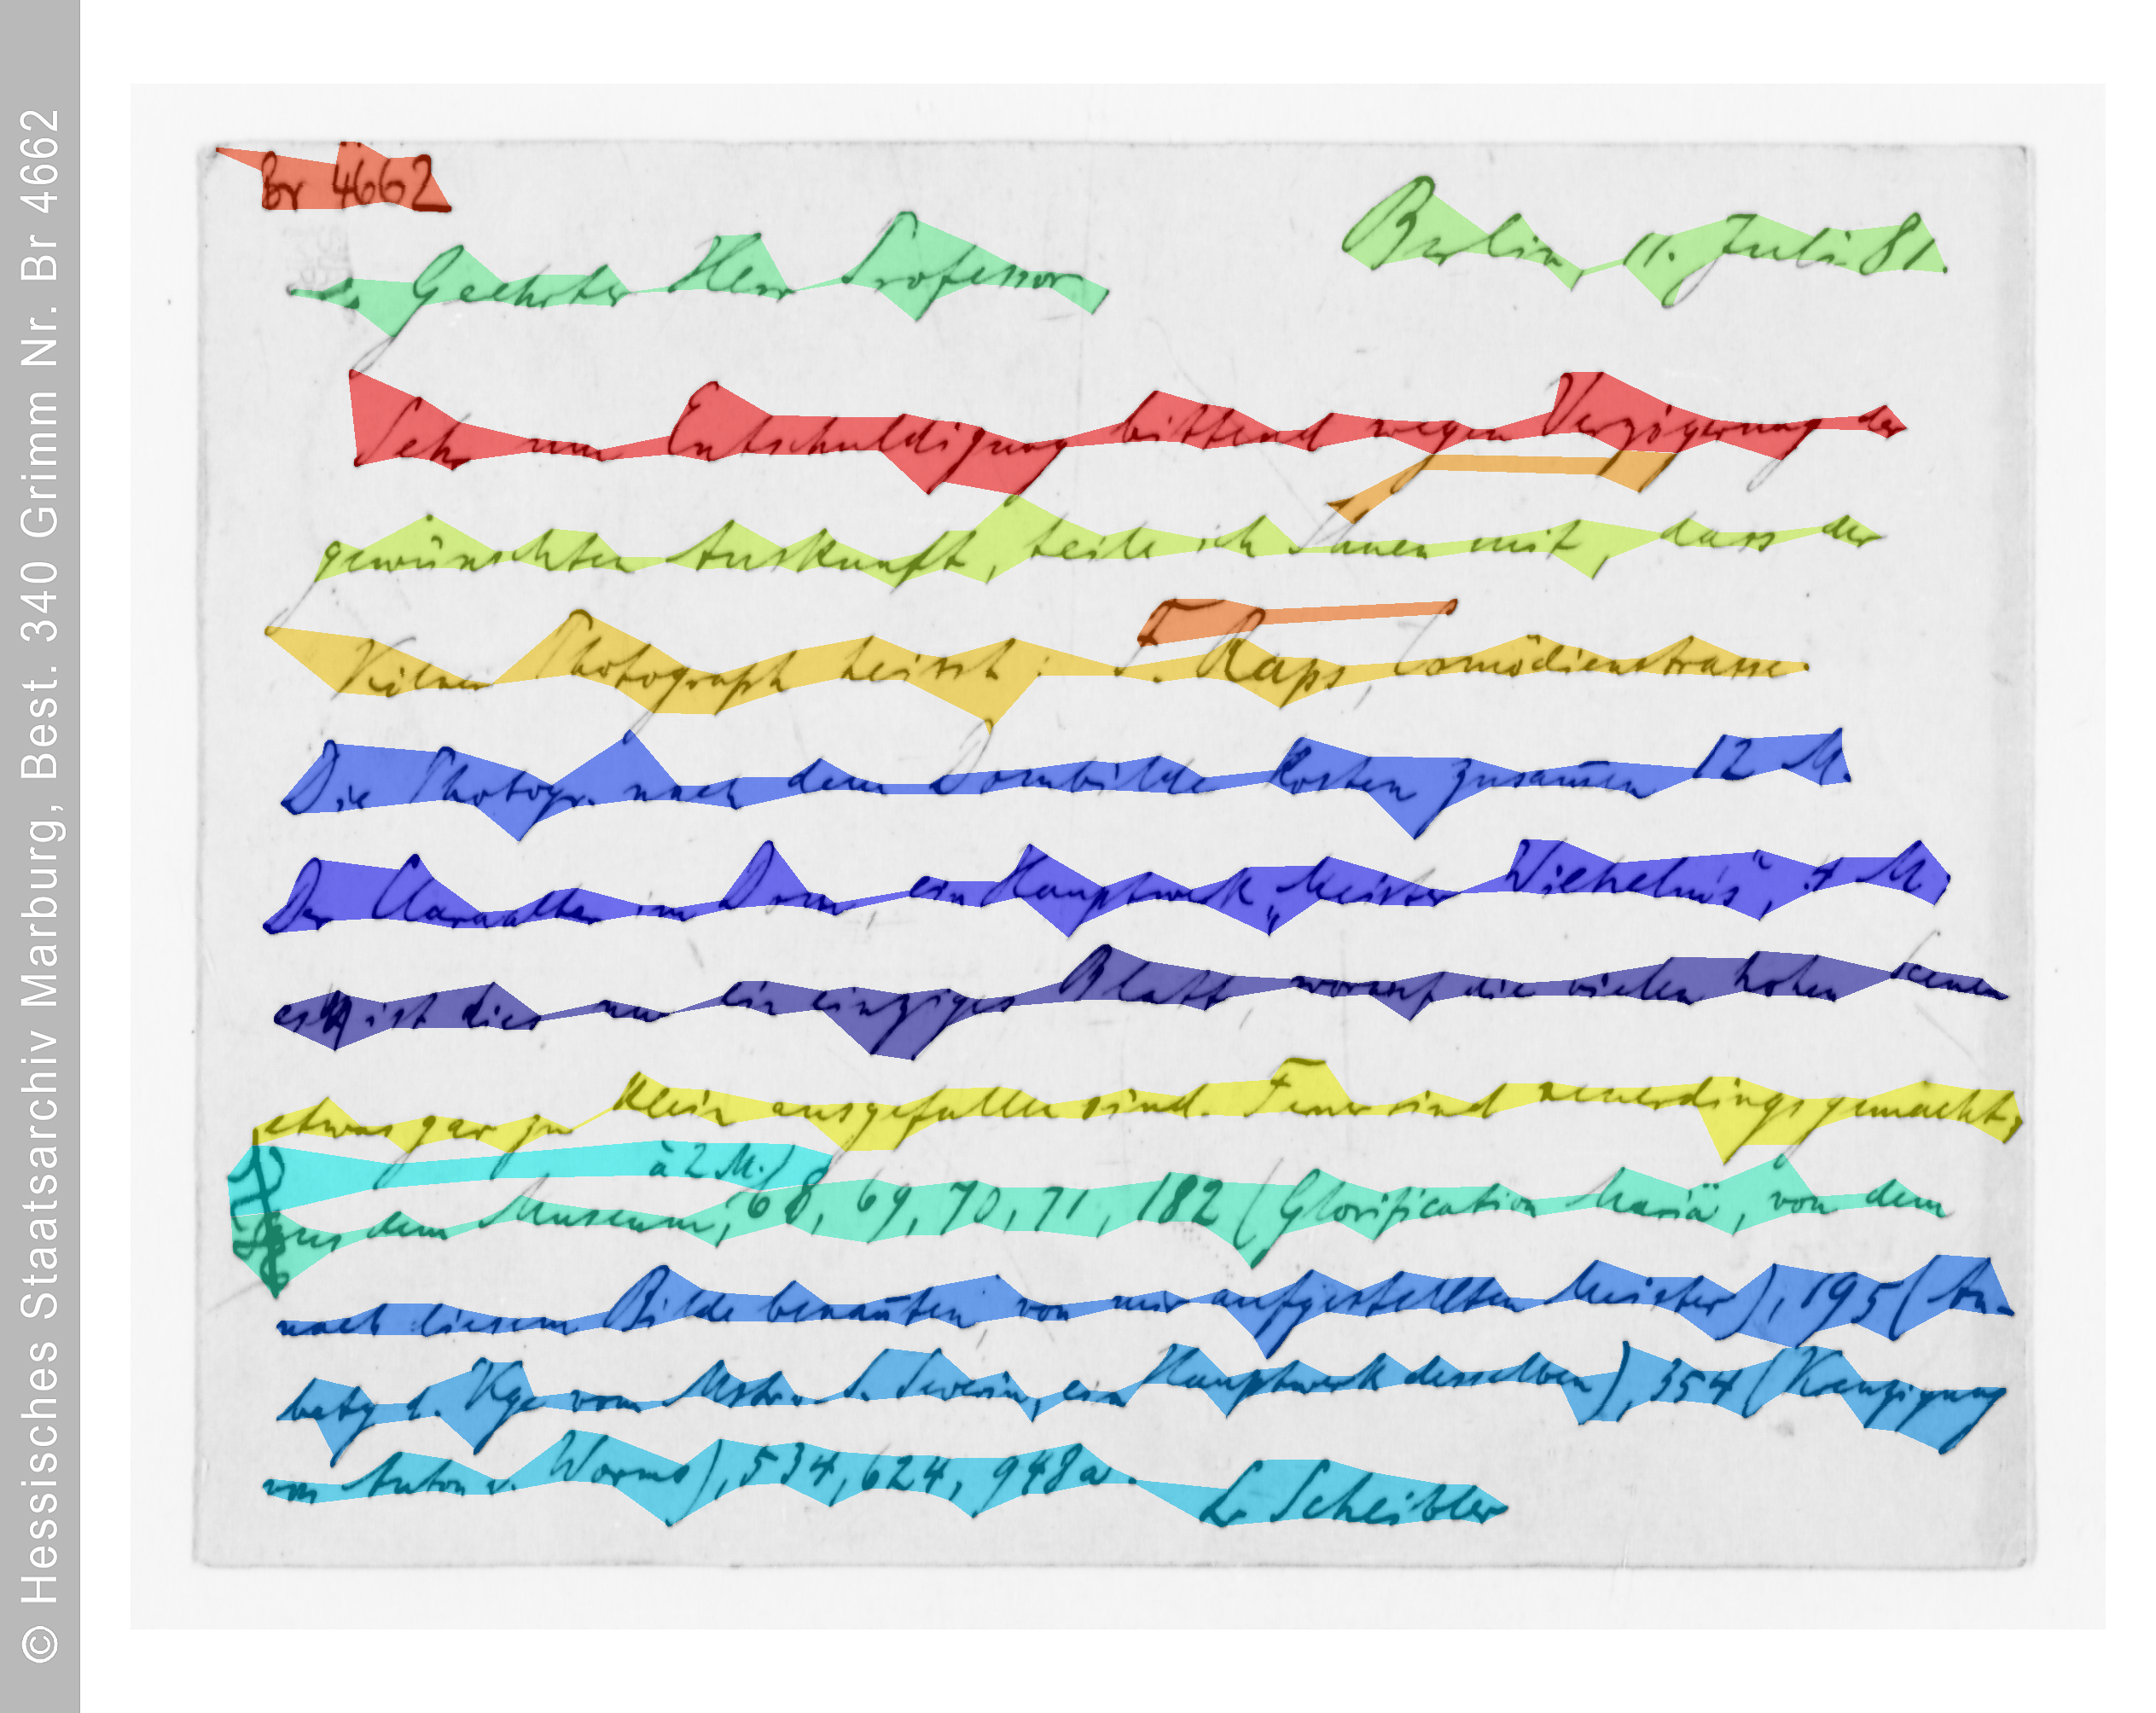 © Hessisches Staatsarchiv Marburg, Best. 340 Grimm Nr. Br 4662
Br 4662
Berlin, 11. Juli 81.
Geehrter Herr Professor
Sehr um Entschuldigung bittend wegen Verzögerung der
gewünschten Auskunft, teile ich Ihnen mit, dass der
Kölner Photograph heisst: F. Raps, Comödienstrasse.
Die Photogr. nach dem Dombilde kosten zusam̅en 12 M.
Der Claraaltar im Dom, ein Hauptwerk „Meister Wilhelms", 4 M.
es ist dies nur ein einziges Blatt worauf die vielen hohen Scenen
etwas gar zu klein ausgefallen sind. Ferner sind neuerdings gemacht,
à 2 M.)
aus dem Museum, 68, 69, 70, 71, 182 (Glorification Mariä, von dem
nach diesem Bilde benan̅ten von mir aufgestellten Meister), 195 (An-
betg d. Kge vom Mstr. S. Severin, ein Hauptwerk desselben), 354 (Kreuzigung
von Anton v. Worms), 534, 624, 948a. L. Scheibler